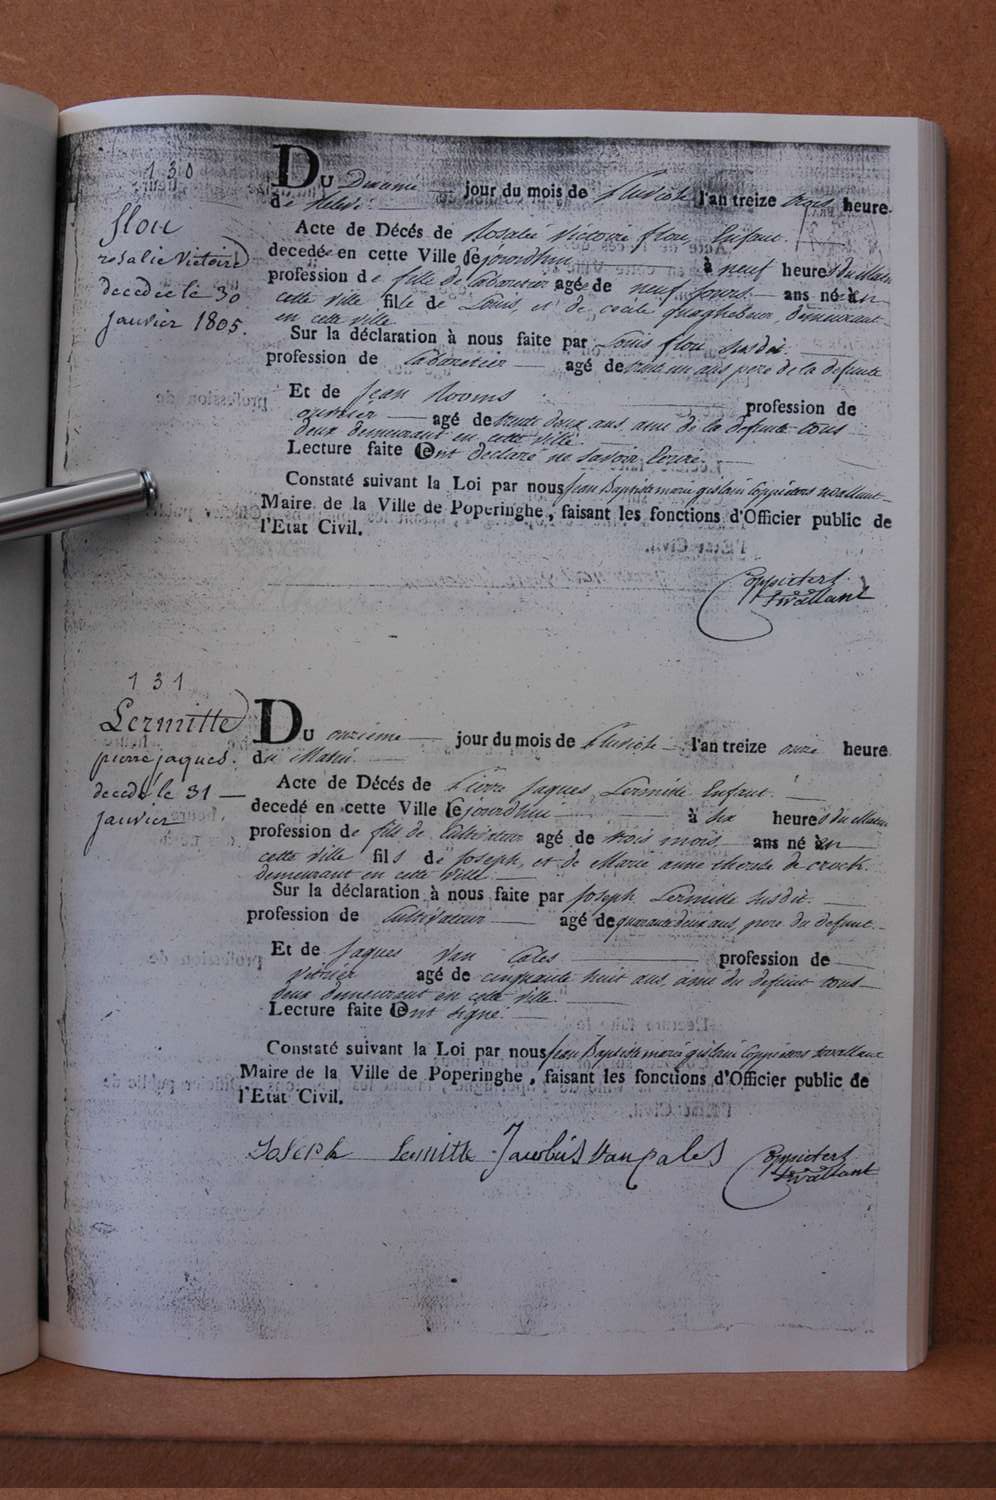 130
flou
rosalie Victoire
decedée le 30
janvier 1805.
Du Dixième jour du mois de Pluviôse l'an treize trois heure
de Relevé.
Acte de Décés de Rosalie Victoire flou Enfant.
decedée en cette Ville Cejourdhui à neuf heures du Matin
profession de fille de Cabaretier agée de neuf jours ans né à En
cette ville fille de Louis, et de cécile quaghebeur, demeurant
en cette ville
Sur la déclaration à nous faite par Louis flou susdit.
profession de Cabaretier agé de trente un ans pere de la defunte
Et de Jean Rooms profession de
ouvrier agé de trente deux ans, ami de la defunte tous
deux demeurant en cette ville.
Lecture faite ont declaré ne savoir Ecrire.
Constaté suivant la Loi par nous Jean Baptiste marie gislain Coppieters twallant
Maire de la Ville de Poperinghe, faisant les fonctions d'Officier public de
l'Etat Civil.
Coppieters
twallant
131
Lermitte
pierre jaques.
decedé le 31
janvier
Du onzième jour du mois de Pluviôse l'an treize onze heure
du Matin.
Acte de Décés de Pierre Jaques Lermitte Enfant.
decedé en cette Ville Cejourdhui à six heures du Matin
profession de fils de Cultivateur agé de trois mois ans né à En
cette ville fils de Joseph, et de Marie anne therese de croock.
demeurant en cette ville.
Sur la déclaration à nous faite par Joseph Lermitte susdit.
profession de Cultivateur agé de quarante deux ans, pere du defunt.
Et de Jaques Van Cales profession de
vitrier agé de cinquante huit ans, ami du defunt tous
deux demeurant en cette ville.
Lecture faite ont signé.
Constaté suivant la Loi par nous Jean Baptiste marie gislain Coppieters twallant
Maire de la Ville de Poperinghe, faisant les fonctions d'Officier public de
l'Etat Civil.
Joseph Lermitte Jacobus Van Cales Coppieters
twallant